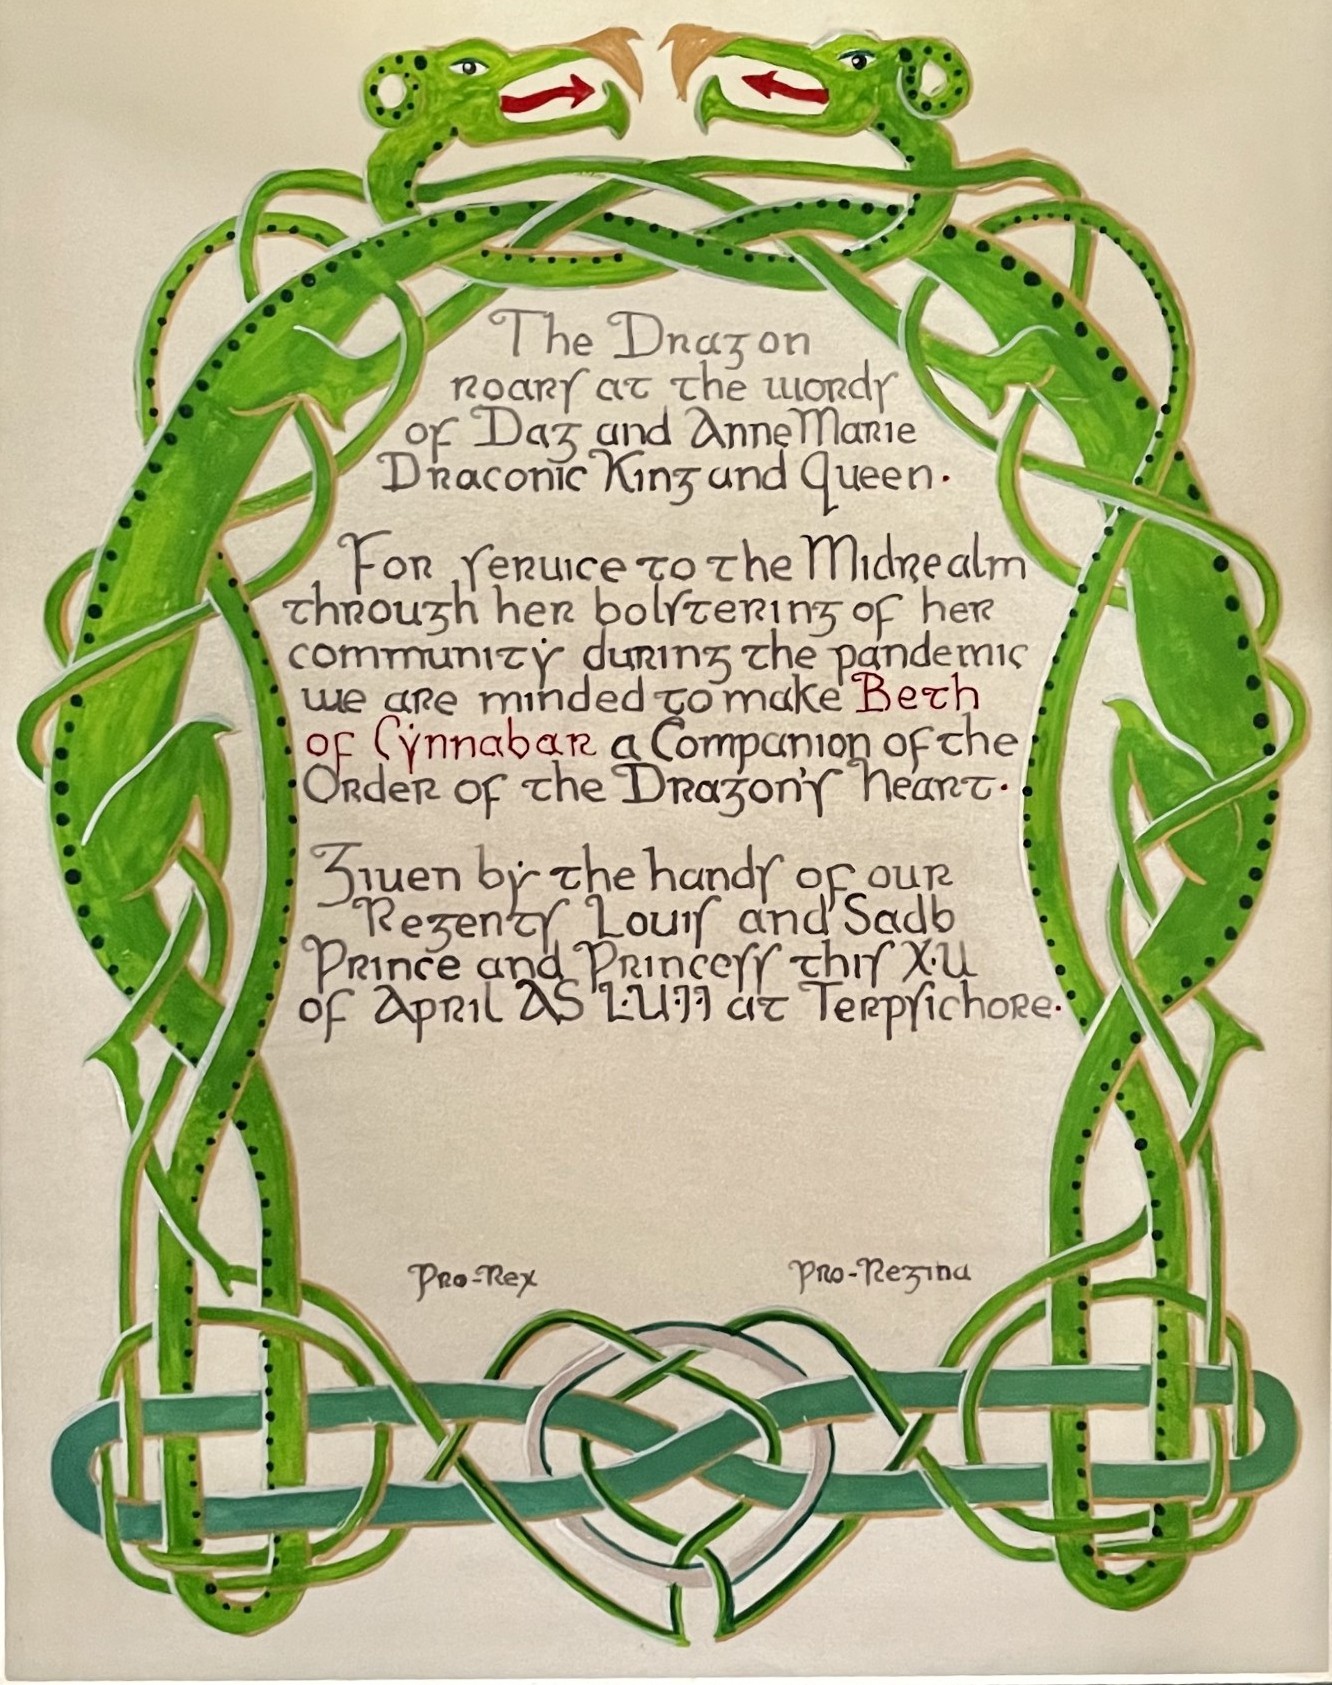 The Dragon
roars at the words
of Dag and AnneMarie
Draconic King and Queen.
For service to the Midrealm
through her bolstering of her
community during the pandemic
we are minded to make Beth
of Cynnabar a Companion of the
Order of the Dragon's Heart.
Given by the hands of our
Regents Louis and Sadb
Prince and Princess this X·U
of April AS L·U·I·I at Terpsichore.
Pro-Rex
Pro-Regina